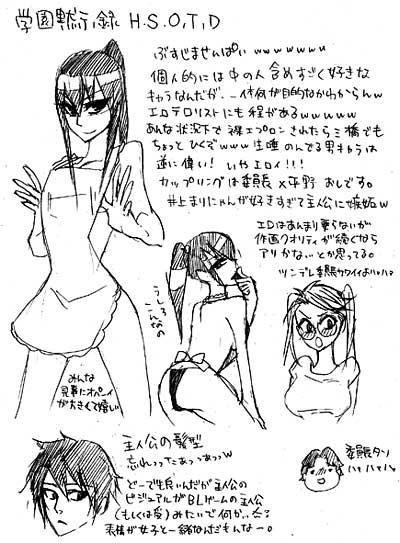 学園黙示録 H.S.O.T.D
ぶすじませんぱい wwwwwww
個人的には中の人含めすごく好きな
キャラなんだが、一体何が目的なかわからんw
エロテロリストにも程があるwwwww
あんな状況下で裸エプロンされたら三橋でも
ちょっとひくぞwww生唾のんでる男キャラは
逆に偉い!いやエロイ!!!
カップリングは委員長×平野おしです。
井上まりにゃんが好きすぎて主人公に嫉妬w
EDはあんまり要らないが
作画クオリティが続くなら
アリかな とか思ってる。
ツンデレ委員長カワイイよハァハァ
うしろ
こんなの
みんな
見事にオパーイ
が大きくて嬉しい
主人公の髪型
忘れったぁっつぁっつw
どーでも良いんだが主人公の
ビジュアルがBLゲームの主人公
(もしくは受)みたいで何か、
表情が女子と一緒なんだもんなー。
委員長タン
ハァハァハァ